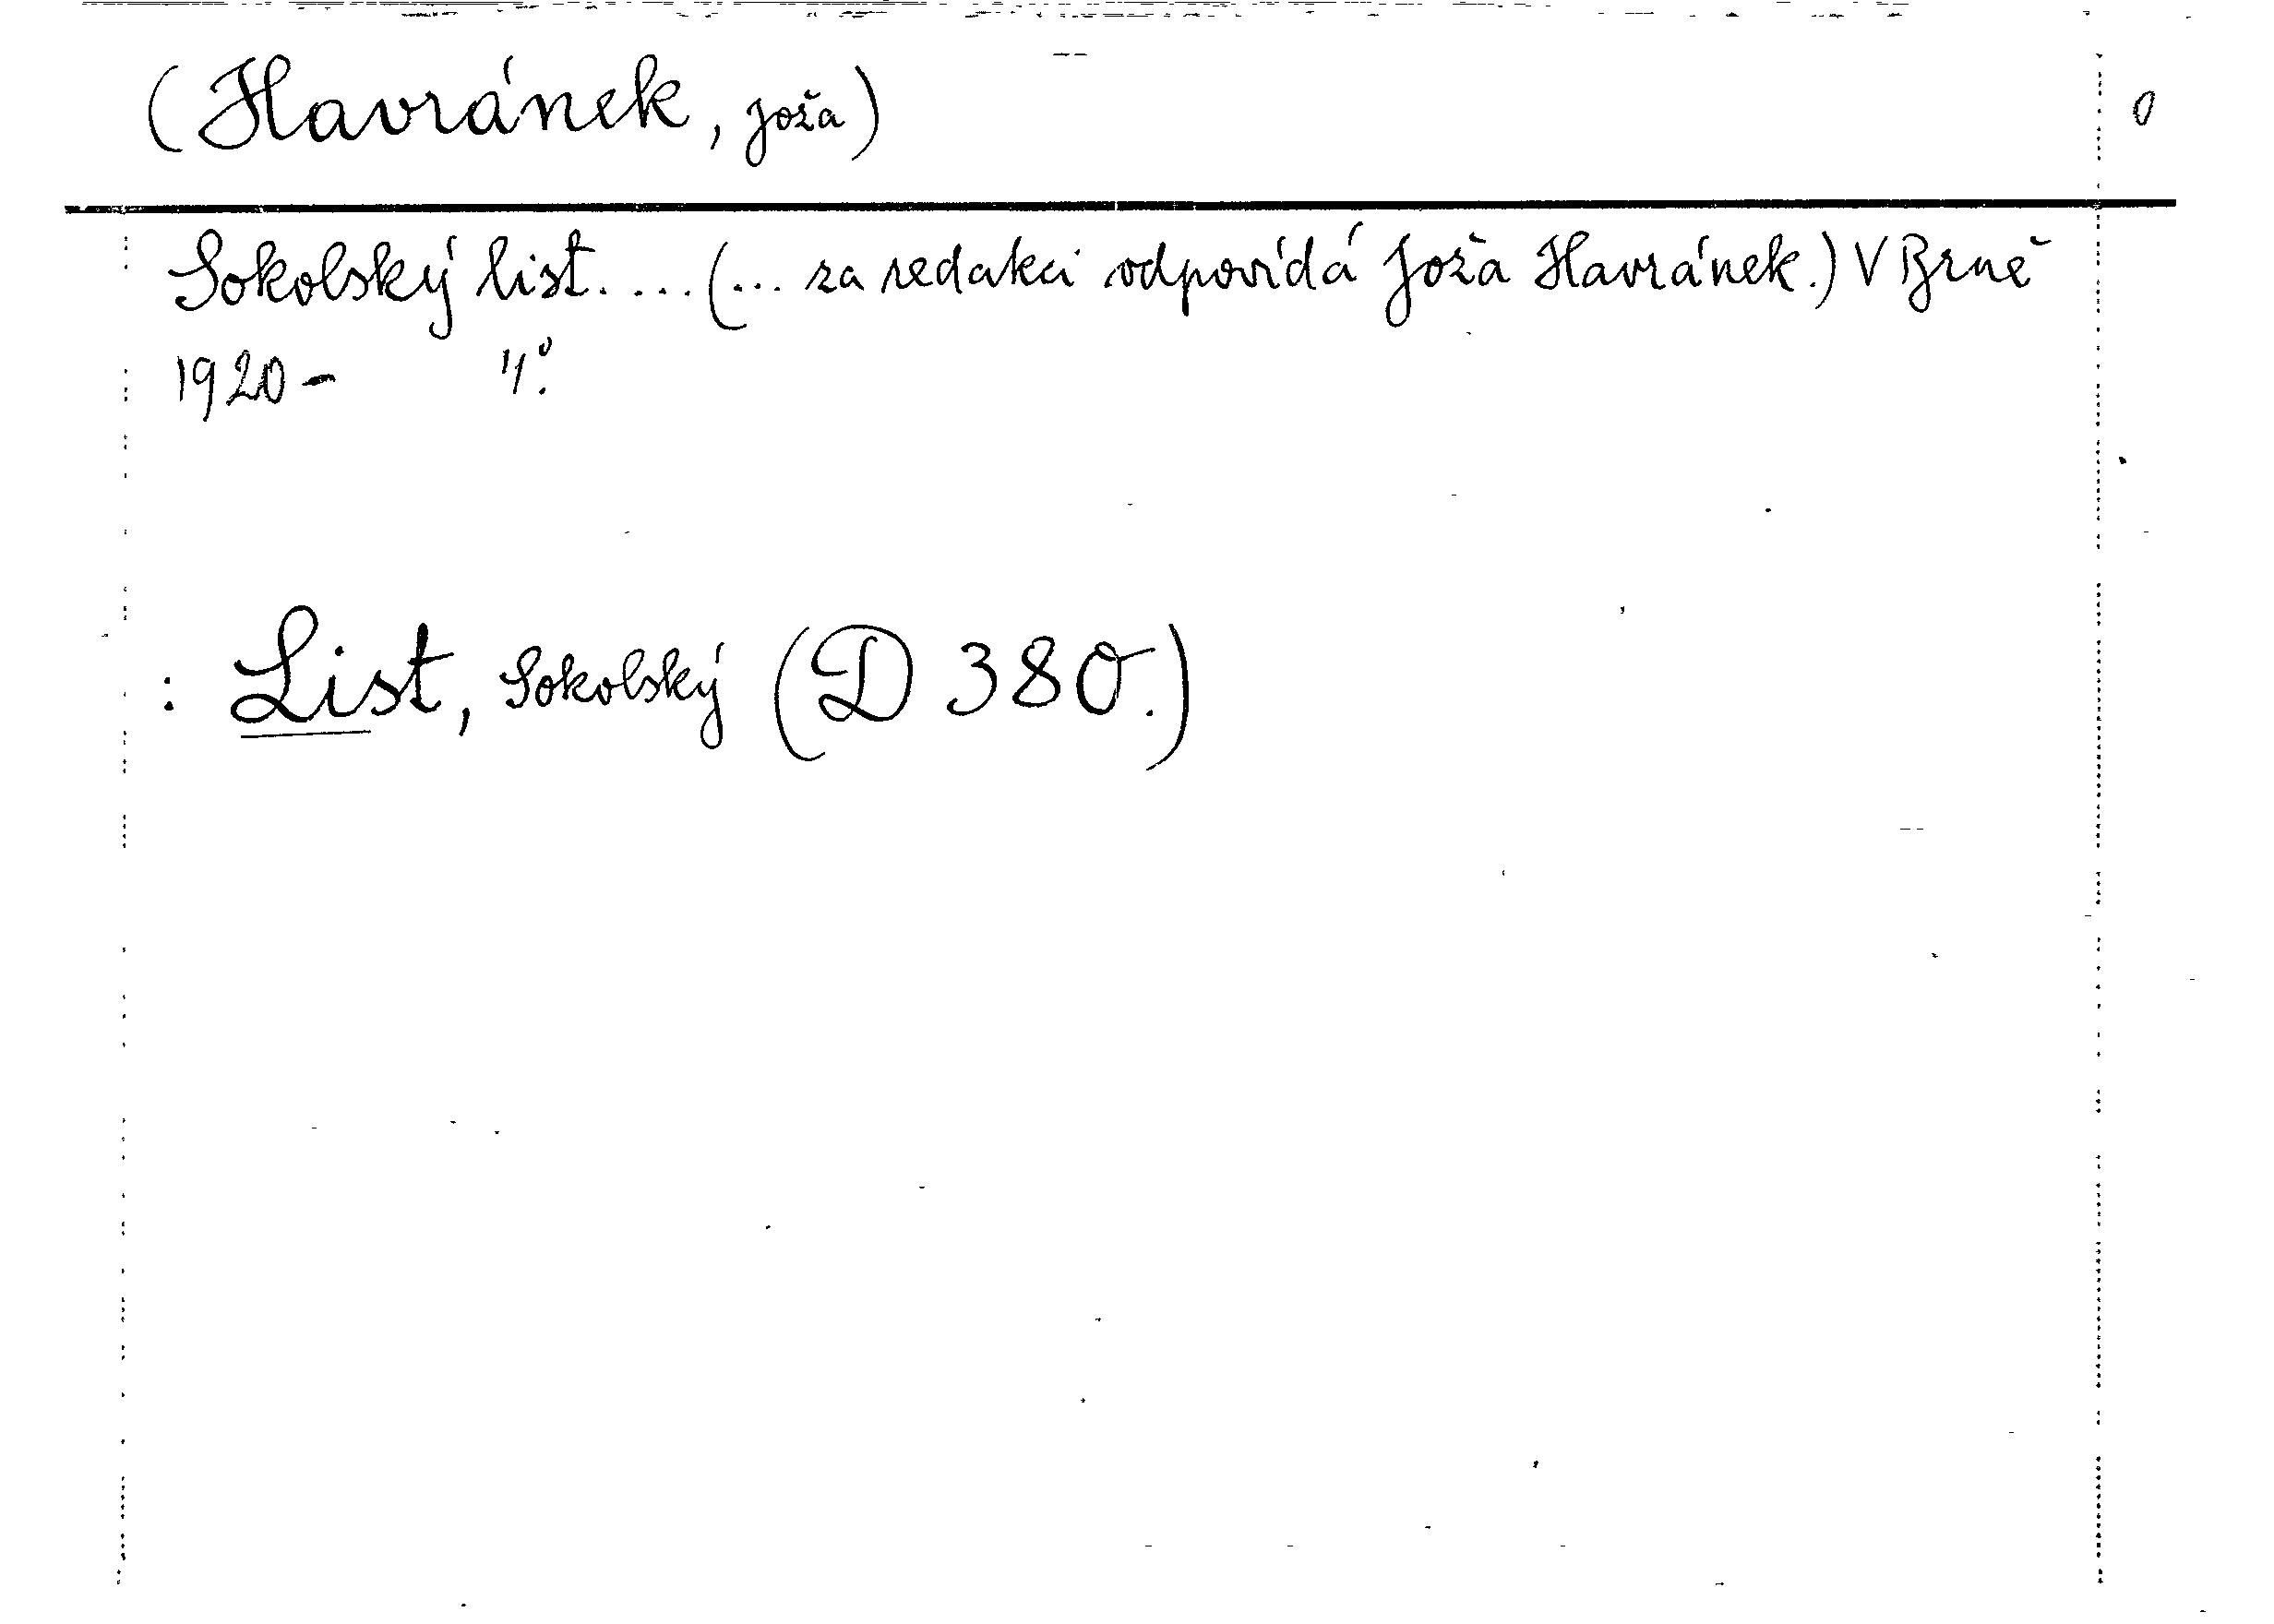 (Havránek, Joža) 0
Sokolský list.... (... za redakci odpovídá Joža Havránek.) V Brně
1920- 4°.
: List, Sokolský (D 380.)